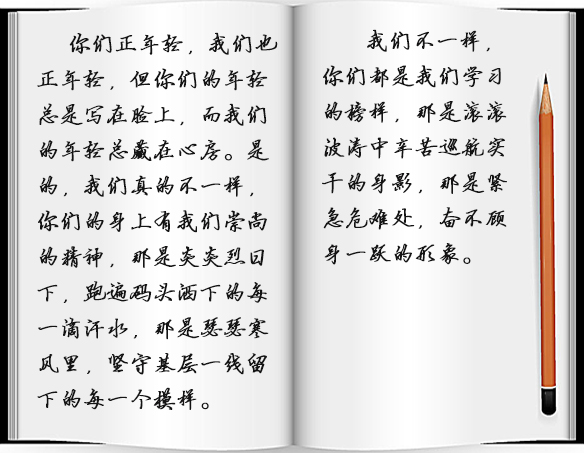 你们正年轻，我们也
正年轻，但你们的年轻
总是写在脸上，而我们
的年轻总藏在心房。是
的，我们真的不一样，
你们的身上有我们崇尚
的精神，那是炎炎烈日
下，跑遍码头洒下的每
一滴汗水，那是瑟瑟寒
风里，坚守基层一线留
下的每一个模样。
我们不一样，
你们都是我们学习
的榜样，那是滚滚
波涛中辛苦巡航实
干的身影，那是紧
急危难处，奋不顾
身一跃的形象。